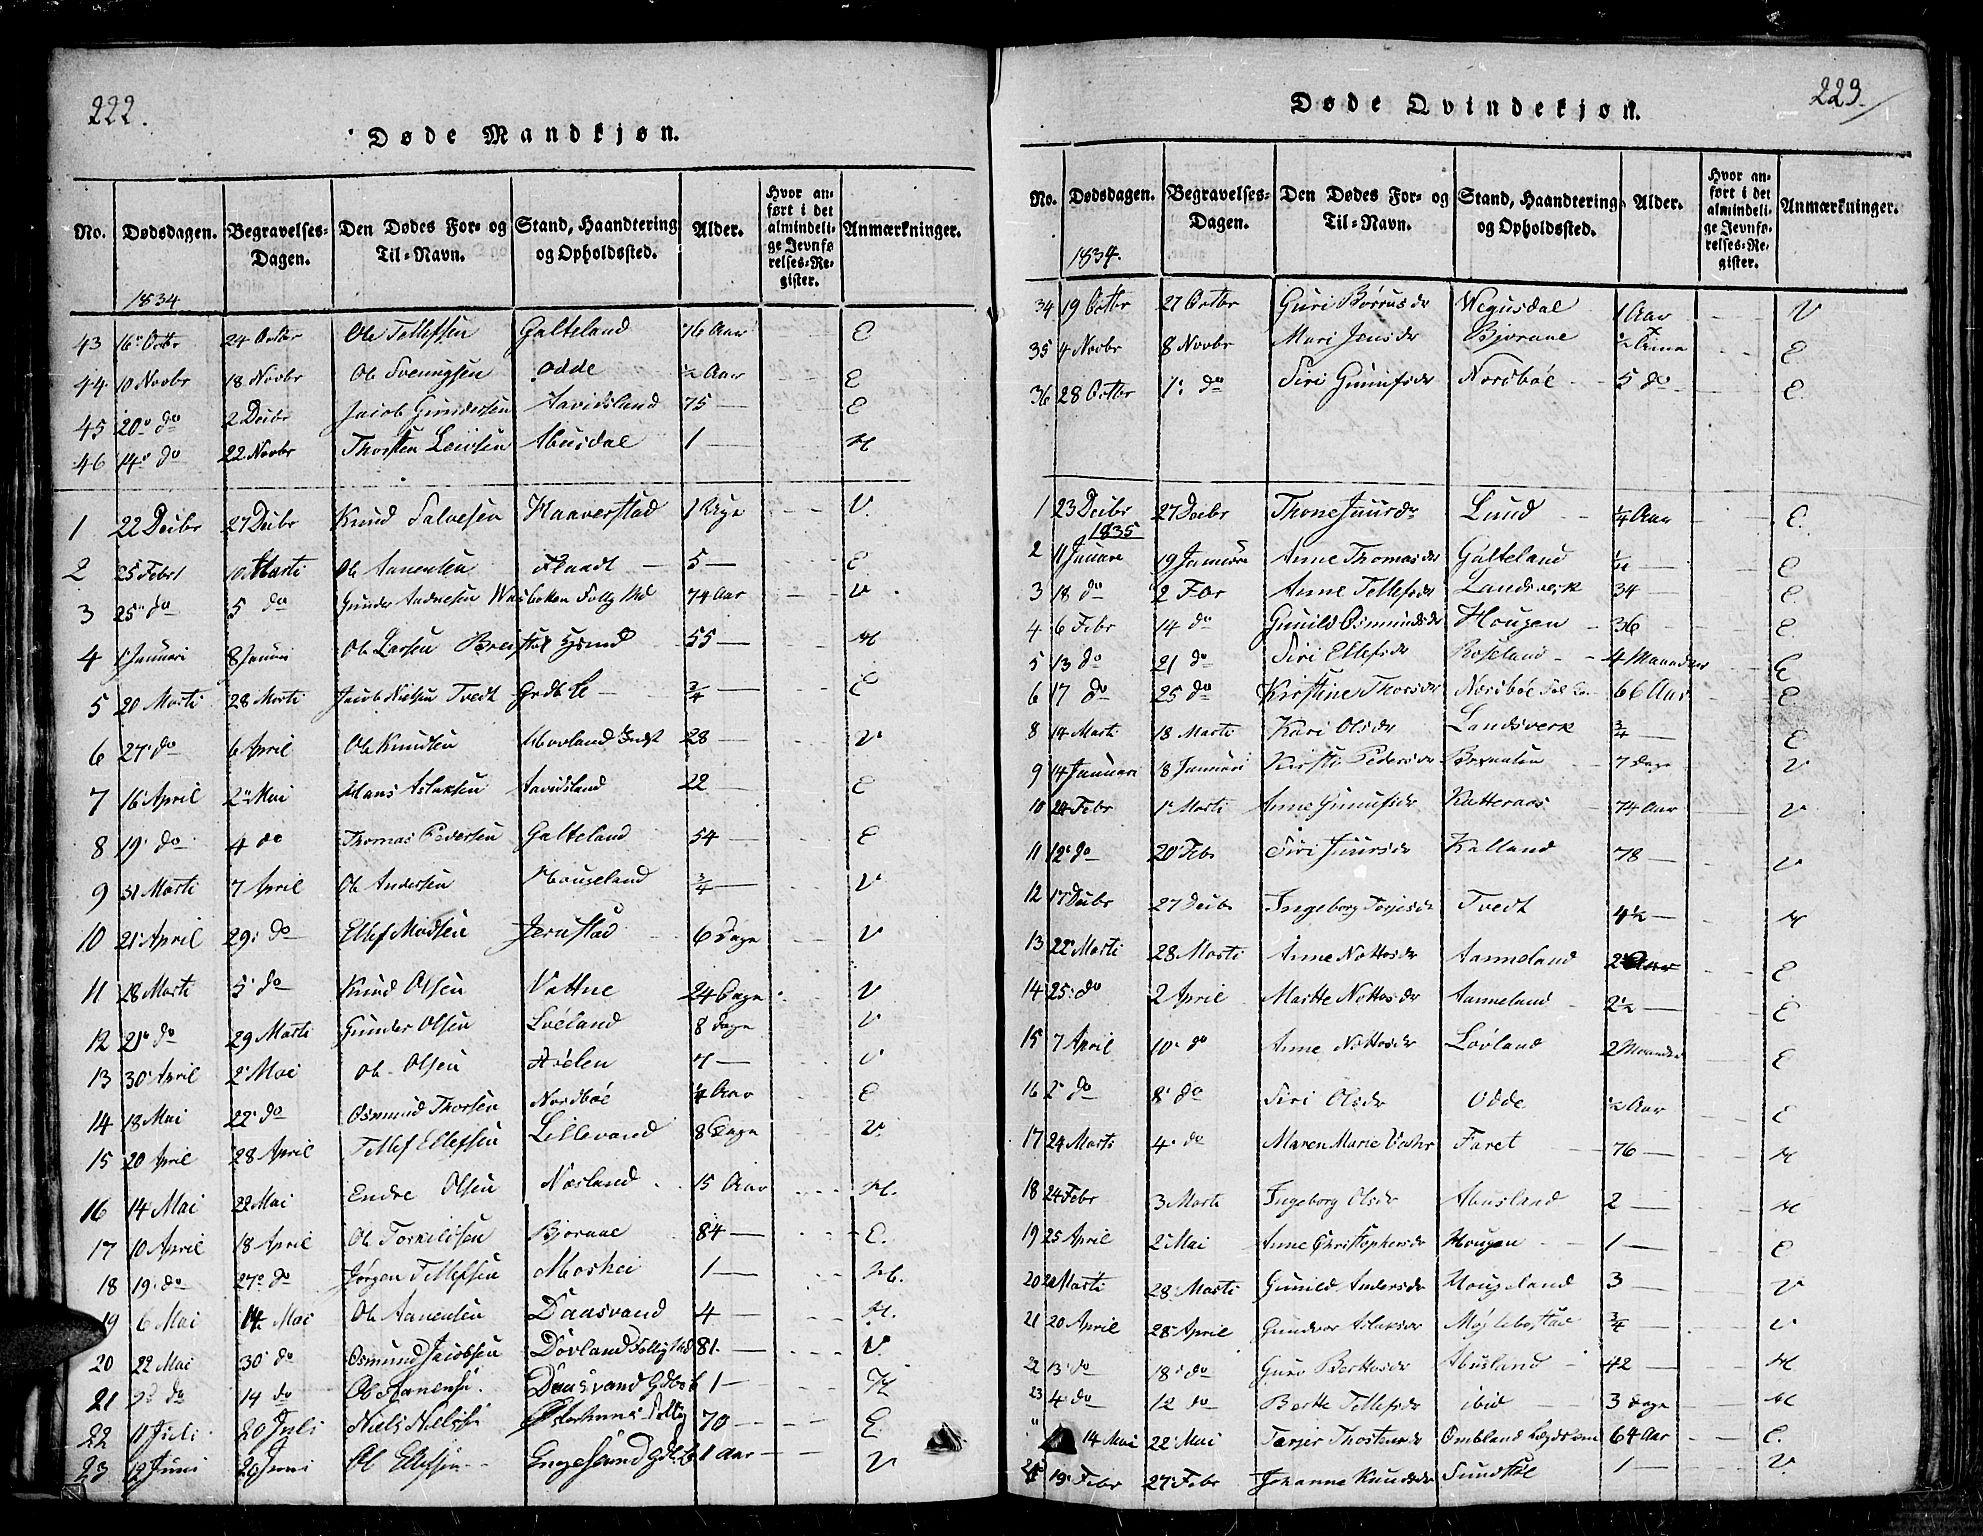 222.
Døde Mandkjøn.
No. Dødsdagen. Begravelses-Dagen. Den Dødes For- og Til-Navn. Stand, Haandtering og Opholdssted. Alder. Hvor anført i det almindelige Jevnførelses-Register. Anmærkninger.
1834
43 16 Octbr 24 Octbr Ole Tellefsen Galteland 76 Aar E
44 10 Novbr 18 Novbr Ole Svenungsen Odde ½ Aar E
45 20 do 2 Decbr Jacob Gundersen Aavidsland 75 — E
46 14 do 22 Novbr Thorsten Leivsen Abusdal 1 — H
1 22 Decbr 27 Decbr Knud Salvesen Haaverstad 1 Uge V.
2 25 Febr 10 Marti Ole Aanensen Flaadt 5 — E
3 25 do 5 do Gunder Andersen 74 Aar V.
4 1 Januari 8 Januari Ole Larsen 55 — H
5 20 Marti 28 Marti Jacob Nielsen Tvedt ¾ — E
6 27 do 6 April Ole Knudsen Hovland 28 — V
7 16 April 2 Mai Hans Aslaksen Aavidsland 22 E
8 19 do 4 do Thomas Pedersen Galteland 54 — E
9 31 Marti 7 April Ole Andersen Hougeland ¾ — V
10 21 April 29 do Ellef Madsen Jerustad 6 Dage V
11 28 Marti 5 do Knud Olsen Vattne 24 Dage V
12 21 do 29 Marti Gunder Olsen Lvéland 8 Dage V
13 30 April 2 Mai Ole Olsen 7 — V
14 18 Mai 22 do Osmund Thorsen Nordbøe ¼ Aar E
15 20 April 28 April Tellef Ellefsen Lillevand 8 Dage V.
16 14 Mai 22 Mai Endre Olsen Næsland 15 Aar H.
17 10 April 18 April Ole Torkildsen Bjorane 84 — E.
18 19 do 27 do Jørgen Tellefsen Moskei 1 — H.
19 6 Mai 14 Mai Ole Aanensen Daasvand 4 H.
20 22 Mai 30 do Osmund Jacobsen Dovland 81. V.
21 do 14 do Ole Aanens. Daasvand Gdbr 1 — H
22 11 Juli 20 Juli Niels Niels 70 — E.
23 12 Juni 20 Juni Ole Ellefsen Engesland 1 Aar — V
223.
Døde Qvindekjøn.
No. Dødsdagen. Begravelses-Dagen. Den Dødes For- og Til-Navn. Stand, Haandtering og Opholdssted. Alder. Hvor anført i det almindelige Jevnførelses-Register. Anmærkninger.
1834.
34 19 Octbr 27 Octbr Guri Børrusdr Wegusdal 1 Aar V
35 4 Novbr 8 Novbr Mari Jensdr Bjorane ½ Time E
36 28 Octbr 1 do Siri Gunufsdr Nordbøe 5 do E.
1 23 Decbr 27 Decbr Thone Juursdr Lund ¼ Aar E.
1835
2 11 Januari 19 Januari Anne Thomasdr Galteland ¼ — E
3 18 do 2 Febr Anne Tellefsdr Landsverk 34 — E.
4 6 Febr 14 do Gunild Osmundsdr Hougen 36 E.
5 13 do 21 do Siri Ellefsdr Roseland 4 Maaneder E
6 17 do 25 do Kirstine Thorsdr Nordbøe 66 Aar E.
8 14 Marti 18 Marti Kari Olsdr Landsverk ¾ — E
9 14 Januari 8 Januari Kirsti Pedersdr 7 Dage V
10 24 Febr 1 Marti Anne Gunufsdr Katteraas 74 Aar V
11 12 do 20 Feb Siri Juursdr Kalland 78 — V
12 17 Decbr 27 Decbr Ingeborg Terjesdr Tvedt 4½ — H
13 22 Marti 28 Marti Anne Nottosdr Aanneland E
14 25 do 2 April Marthe Nottosdr Aanneland 2½ E
15 7 April 10 do Anne Nottosdr Løvland 2 Maander E
16 2 do 8 do Siri Olsdr Odde ½ Aar E
17 24 Marti 4 do Maren Marie Faret 76 — H
18 24 Febr 3 Marti Ingeborg Olsdr Abusland 2 — H
19 25 April 2 Mai Anne Christophersdr Hougen 1 — E
20 20 Marti 28 Marti Gunild Andersdr Hougeland 3 — V
21 20 April 28 April Gundvor Aslaksdr Møglebostad ¾ — V
22 13 do 18 do Guro Berthosdr Abusland 42 — H
23 4 do 12 do Berthe Tellefsdr ibid 3 Dage H
14 Mai 22 Mai Tarjer Thostensdr Ombland Lægdslem 64 Aar E.
25 19 Febr 27 Febr Johanne Knudsdr Sundstøl 1 — V.